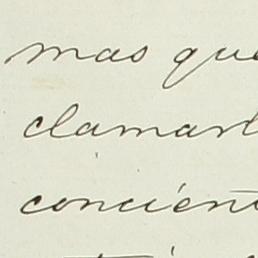 mas que
clamarl
concient